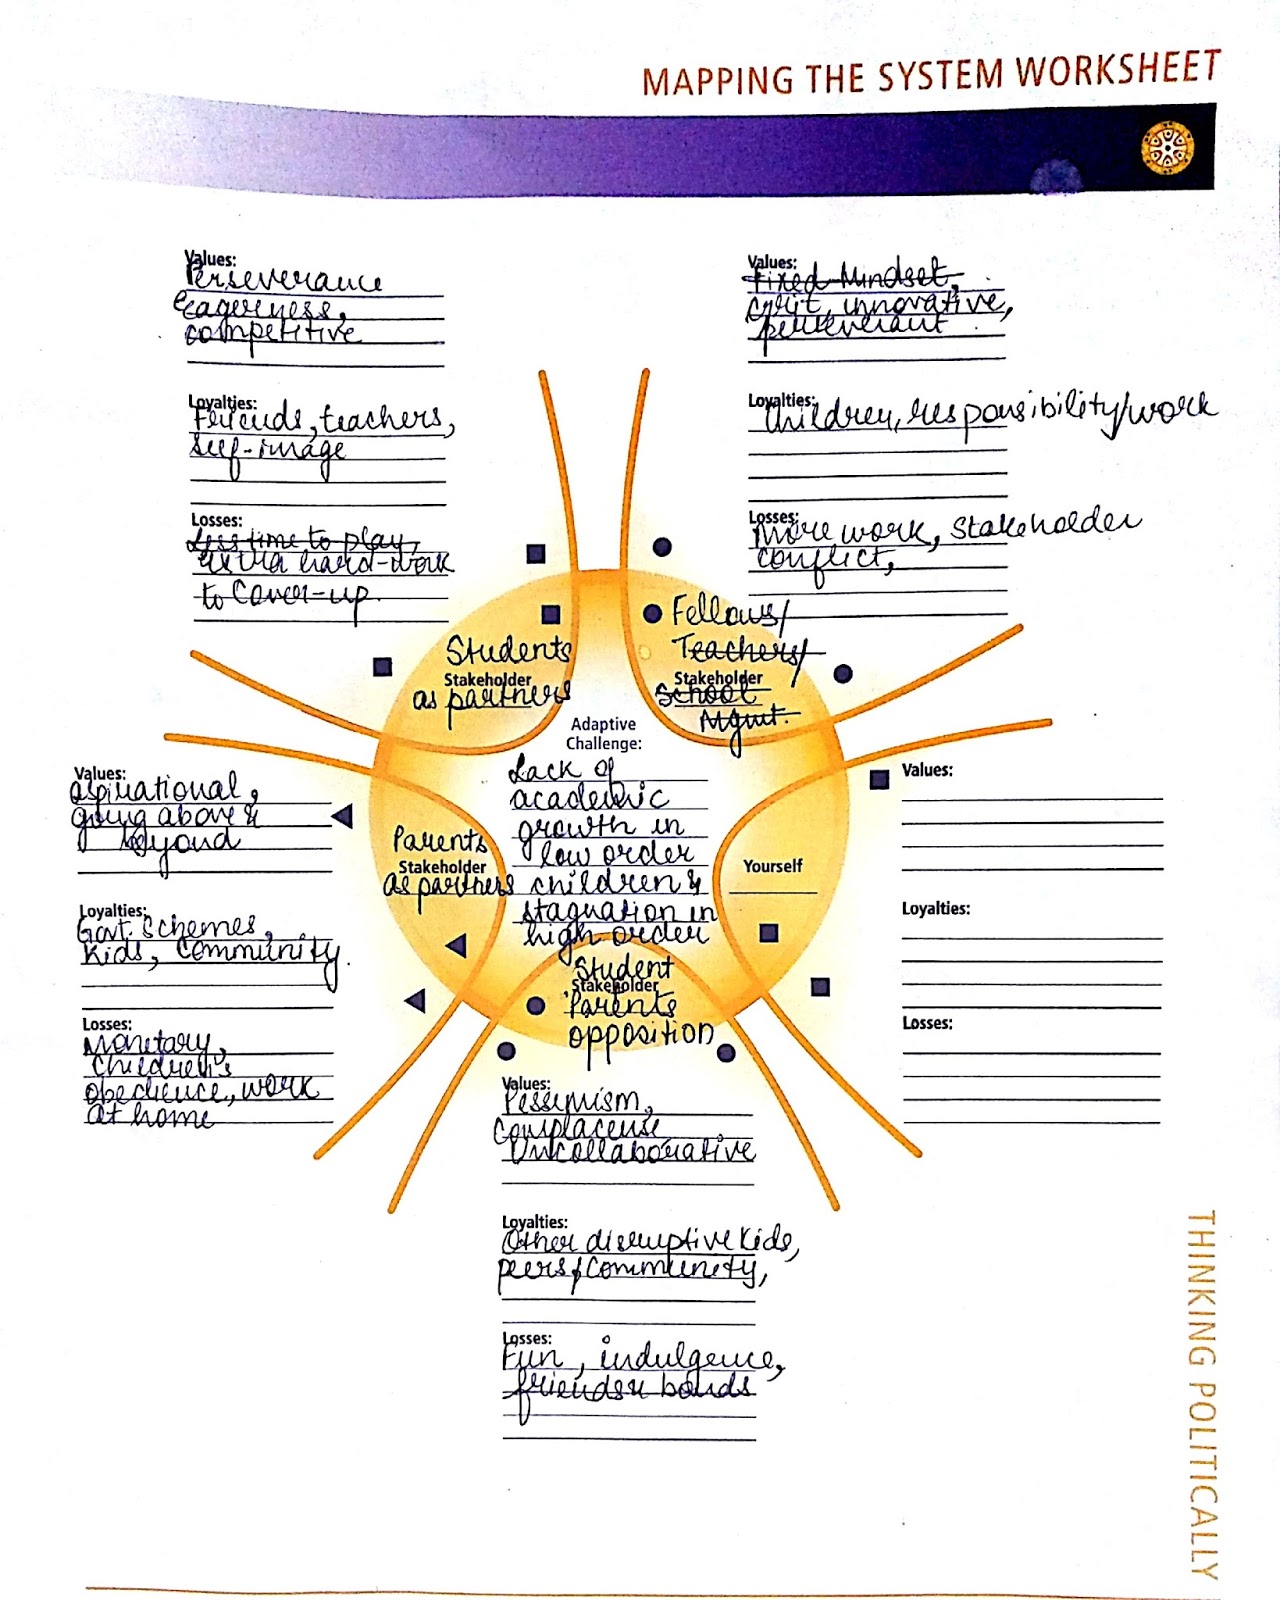 MAPPING THE SYSTEM WORKSHEET
Values:
Perseverance
eagerness,
competitive
Loyalties:
Friends, teachers,
self-image
Losses:
Less time to play,
extra hard-work
to Cover-up.
Values:
Fixed Mindset,
grit, innovative,
perseverant
Loyalties:
Children, responsibility/work
Losses:
More work, Stakeholder
conflict,
Students
Stakeholder
as partners
Fellows/
Teachers/
Stakeholder
School
Mgmt.
Adaptive
Challenge:
Lack of
academic
growth in
low order
children &
stagnation in
high order
Values:
aspirational,
going above &
beyond
Loyalties:
Govt. Schemes,
kids, community.
Losses:
Monetary,
children's
obedience, work
at home
Parents
Stakeholder
as partners
Yourself
Values:
Loyalties:
Losses:
Student
Stakeholder
Parents
opposition
Values:
Pessimism,
Complacense
Uncollaborative
Loyalties:
Other disruptive kids,
peers/community,
Losses:
Fun, indulgence,
friends & bonds
THINKING POLITICALLY